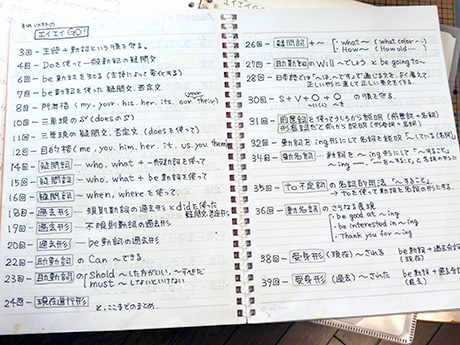 エイエイGO!
3回 - 主語+動詞という順を守る。
4回 - Doを使って一般動詞の疑問文
6回 - be動詞を知る(主語によって変化する)
7回 - be動詞を使った疑問文、否定文
8回 - 所有格 (my, your, his, her, its, our, their)
your
10回 - 三単現のS (doesを使って)
11回 - 三単現の疑問文、否定文 (doesを使って)
12回 - 目的格 (me, you, him, her, it, us, you, them)
14回 - 疑問詞 - who, what + 一般動詞を使って
15回 - 疑問詞 - who, what + be動詞を使って
16回 - 疑問詞 - when, whereを使って
18回 - 過去形 - 規則動詞の過去形とdidを使った
疑問文、否定形
19回 - 過去形 - 不規則動詞の過去形
20回 - 過去形 - be動詞の過去形
22回 - 助動詞の Can ~できる。
23回 - 助動詞の Shold ~した方がいい、~すべきだ
must ~しないといけない
24回 - 現在進行形
と、ここまでのまとめ
26回 - 疑問詞 +~ ・what~ (what color~)
・How~ (How old~)
27回 - 助動詞の Will ~でしょう と be going to~
28回 - 日本語とは「~は、~です」で通じる文を、よく考えて、
正しい形に直して正しい英文を作る。
30回 - S+V+O+O の順を守る。
~に ~を
31回 - 前置詞を使ってうしろから説明 (前置詞+名詞)
形容詞だと前から説明 (形容詞+名詞)
32回 - 動詞をing形にして名詞を説明「~している(名詞)」
34回 - 動名詞 - 動詞を~ing形にして「~すること」
35回 - to不定詞の名詞的用法「~すること」
→toを使って動詞を名詞の形にする。
36回 - 動名詞のさらなる表現
・be good at ~ing
・be interested in ~ing
・Thank you for ~ing
38回 - 受身形 (現在) ~される be動詞+過去分詞
(現在)
39回 - 受身形 (過去) ~された be動詞+過去分詞
(過去)